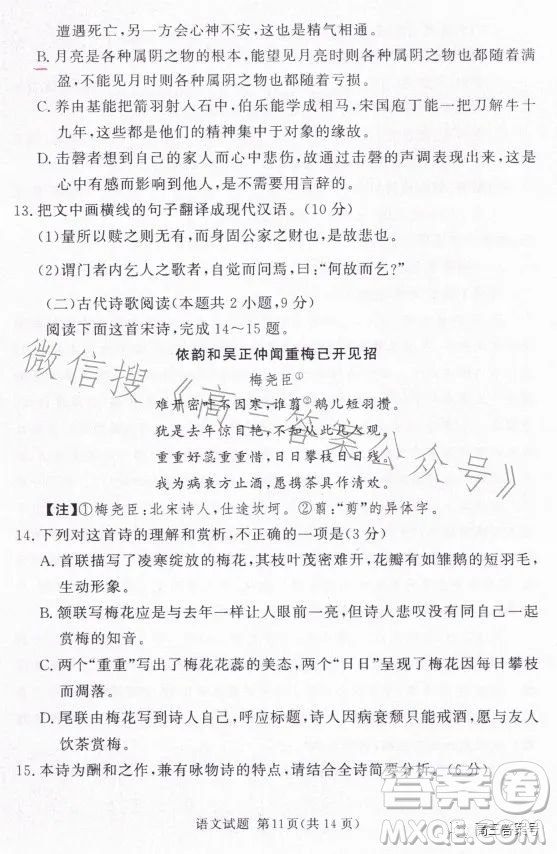 遭遇死亡，另一方会心神不安，这也是精气相通。
B. 月亮是各种属阴之物的根本，能望见月亮时则各种属阴之物也都随着满
盈，不能见月时则各种属阴之物也都随着亏损。
C. 养由基能把箭羽射入石中，伯乐能学成相马，宋国庖丁能一把刀解牛十
九年，这些都是他们的精神集中于对象的缘故。
D. 击磬者想到自己的家人而心中悲伤，故而通过击磬的声调表现出来，内
心存有感而影响到他人，是无需用言辞的。
13. 把文中画横线的句子翻译成现代汉语。（10 分）
（1）量所以赎之则无有，而身固公家之财也，是故悲也。
（2）谓门者内乞人之歌者，自觉而问焉，曰：“何故而乞？”
（二）古代诗歌阅读（本题共 2 小题，9 分）
阅读下面这首宋诗，完成 14～15 题。
依韵和吴正仲闻重梅已开见招
梅尧臣①
难开密叶不因寒，谁剪②鹅儿短羽攒。
犹是去年惊目艳，不知从此几人观。
重重好蕊重重惜，日日攀枝日日残。
我为病衰方止酒，愿携茶具作清欢。
【注】①梅尧臣：北宋诗人，仕途坎坷。②翦：“剪”的异体字。
14. 下列对这首诗的理解和赏析，不正确的一项是（3 分）
A. 首联描写了凌寒绽放的梅花，其枝叶茂密难开，花瓣有如雏鹅的短羽毛，
生动形象。
B. 颔联写梅花应是与去年一样让人眼前一亮，但诗人悲叹没有同自己一起
赏梅的知音。
C. 两个“重重”写出了梅花花蕊的美态，两个“日日”呈现了梅花因每日攀枝
而凋落。
D. 尾联由梅花写到诗人自己，呼应标题，诗人因病衰颓只能戒酒，愿与友人
饮茶赏梅。
15. 本诗为酬和之作，兼有咏物诗的特点，请结合全诗简要分析。（6 分）
语文试题 第 11 页（共 14 页）
微信搜《高三答案公众号》
答案圈
高三答案号